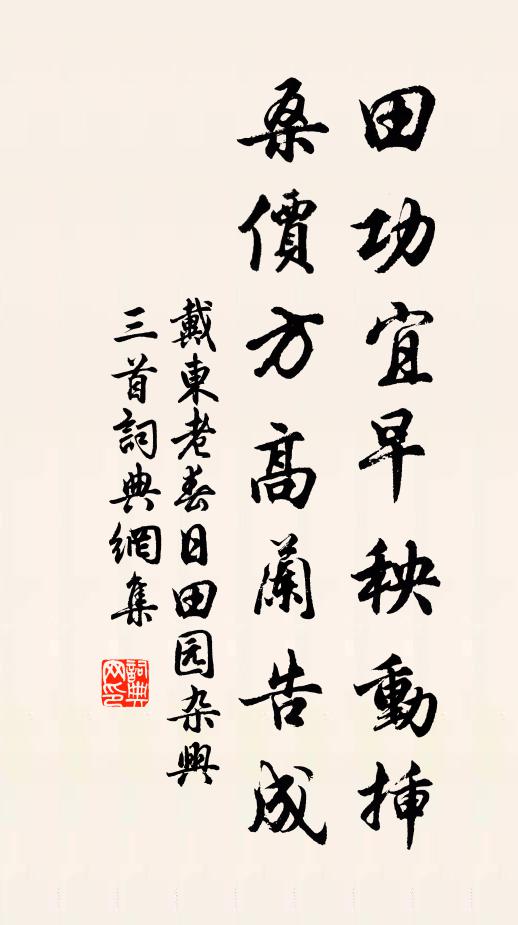 田功宜早秧動挿
桑價方高蘭告成
戴東老春日田园杂興
三首詞典網集
詞典
网印